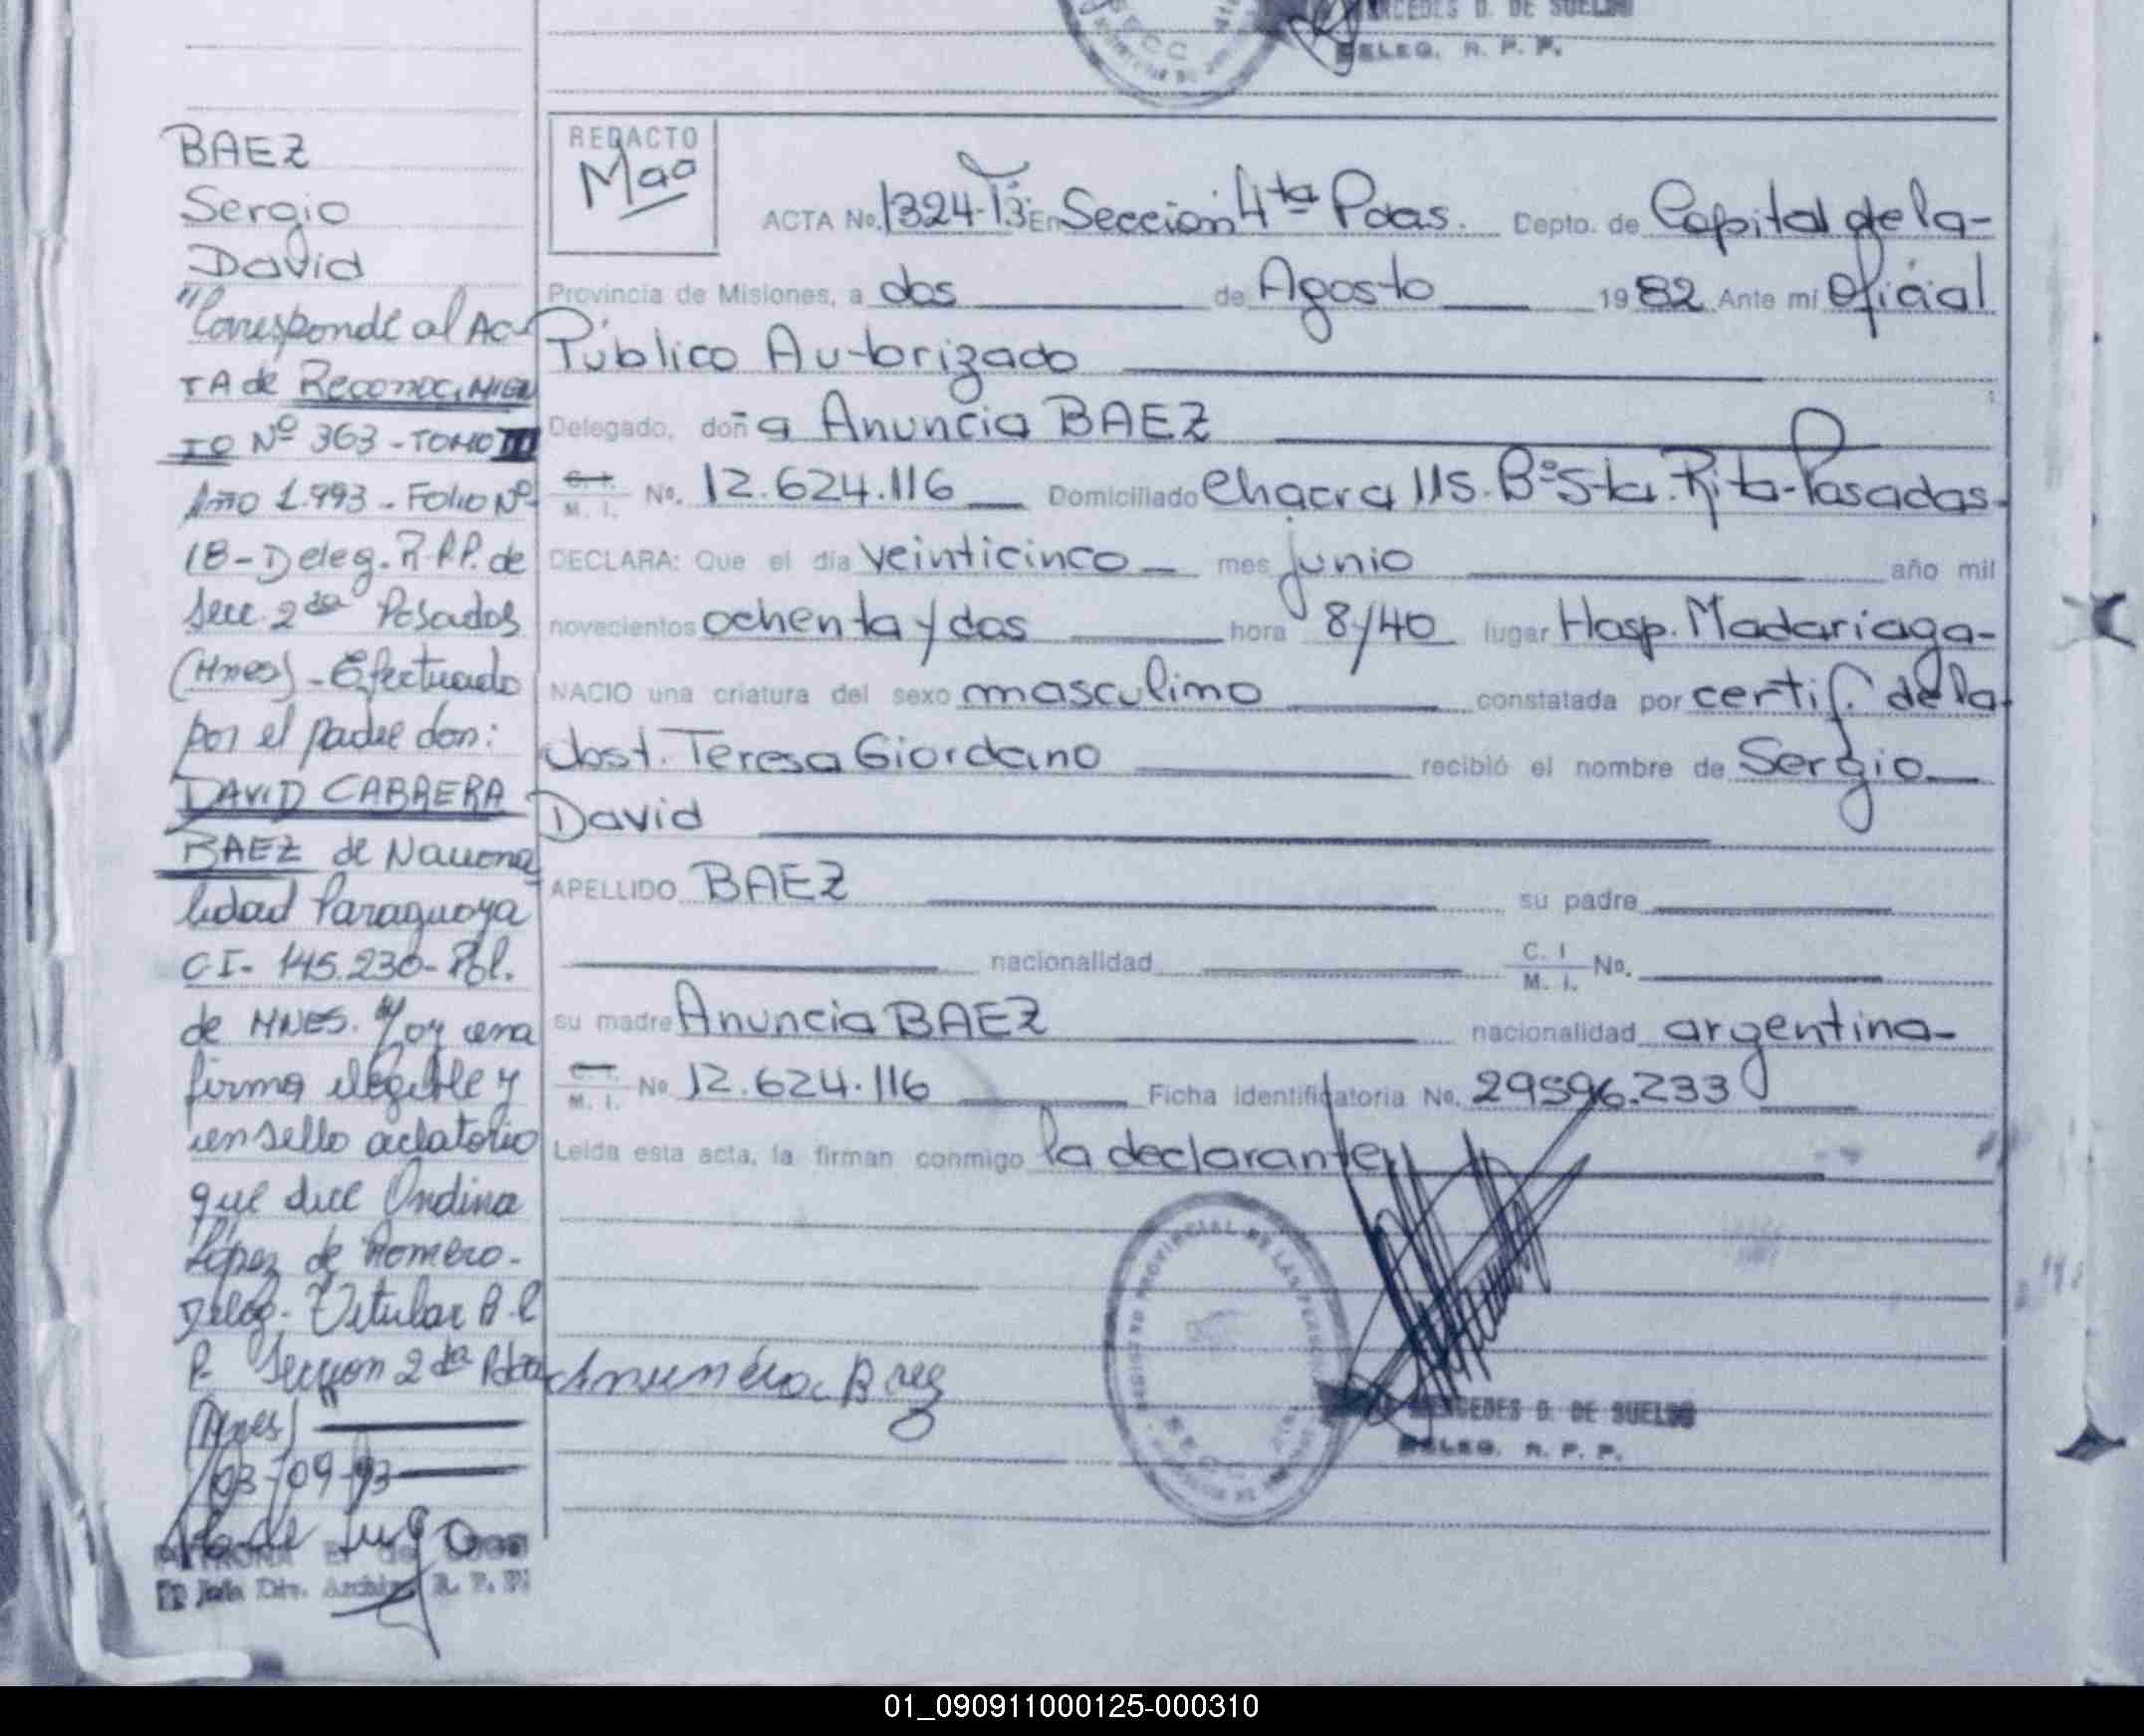 MERCEDES D. DE SUELDO
DELEG. R. P. P.
BAEZ
Sergio
David
"Corresponde al AC-
TA de RECONOCIMIEN
TO Nº 363 - TOMO III
Año 1.993 - Folio Nº
18 - Deleg. R.P.P. de
Secc. 2da Posadas
(Mnes) - Efectuado
por el padre don:
DAVID CABRERA
BAEZ de Naciona
lidad Paraguaya
C.I. 145.230 - Pol.
de MNES. Hoy una
firma ilegible y
un sello aclatorio
que dice Ondina
López de Romero -
Deleg. Titular R.P.
P. Sección 2da Pdas
(Mnes)"
03-09-93
de Lugo
Jefe Div. Archivo R. P. P.
REDACTO
Maa
ACTA No. 1324-T3º En Sección 4ta Pdas. Depto. de Capital de la-
Provincia de Misiones, a dos de Agosto 1982 Ante mí Oficial
Público Autorizado
Delegado, doña Anuncia BAEZ
C. I. M. I. No. 12.624.116 Domiciliado Chacra 115. Bº Sta. Rita-Posadas-
DECLARA: Que el día veinticinco mes junio año mil
novecientos ochenta y dos hora 8/40 lugar Hosp. Madariaga-
NACIO una criatura del sexo masculino constatada por certif. de la
Obst. Teresa Giordano recibió el nombre de Sergio
David
APELLIDO BAEZ su padre
nacionalidad C. I M. I. No.
su madre Anuncia BAEZ nacionalidad argentina-
C. I. M. I. No. 12.624.116 Ficha identificatoria No. 29596.233
Leída esta acta, la firman conmigo la declarante
REGISTRO PROVINCIAL DE LAS PERSONAS
Anuncia Baez
MERCEDES D. DE SUELDO
DELEG. R. P. P.
01_090911000125-000310